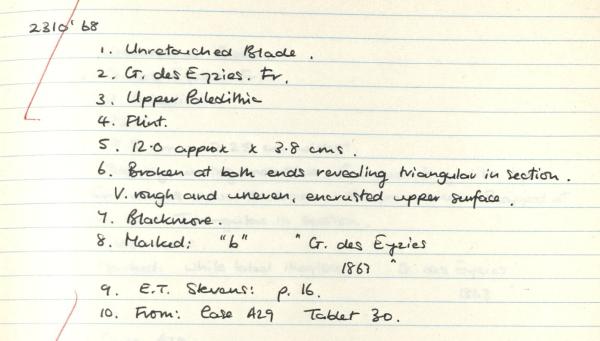 2310'68
1. Unretouched Blade.
2. G. des Eyzies. Fr.
3. Upper Paleolithic
4. Flint.
5. 12.0 approx x 3.8 cms.
6. Broken at both ends revealing triangular in section.
V. rough and uneven, encrusted upper surface.
7. Blackmore.
8. Marked: "b" "G. des Eyzies
1867"
9. E.T. Stevens: p. 16.
10. From: Case A29 Tablet 30.